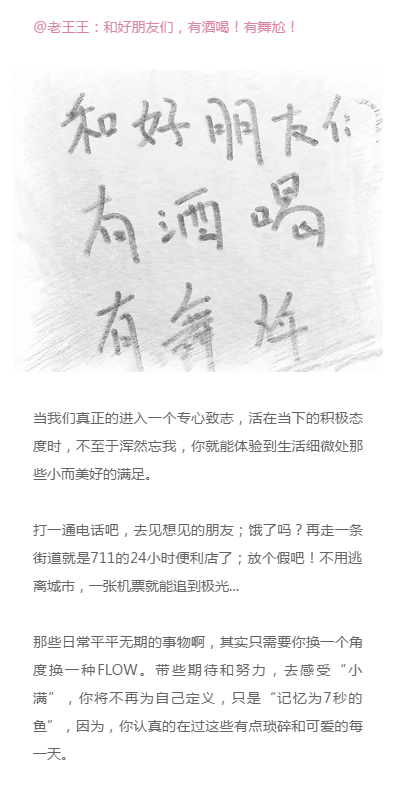 @老王王：和好朋友们，有酒喝！有舞尬！
和好朋友们
有酒喝
有舞尬
当我们真正的进入一个专心致志，活在当下的积极态
度时，不至于浑然忘我，你就能体验到生活细微处那
些小而美好的满足。
打一通电话吧，去见想见的朋友；饿了吗？再走一条
街道就是711的24小时便利店了；放个假吧！不用逃
离城市，一张机票就能追到极光...
那些日常平平无期的事物啊，其实只需要你换一个角
度换一种FLOW。带些期待和努力，去感受“小
满”，你将不再为自己定义，只是“记忆为7秒的
鱼”，因为，你认真的在过这些有点琐碎和可爱的每
一天。